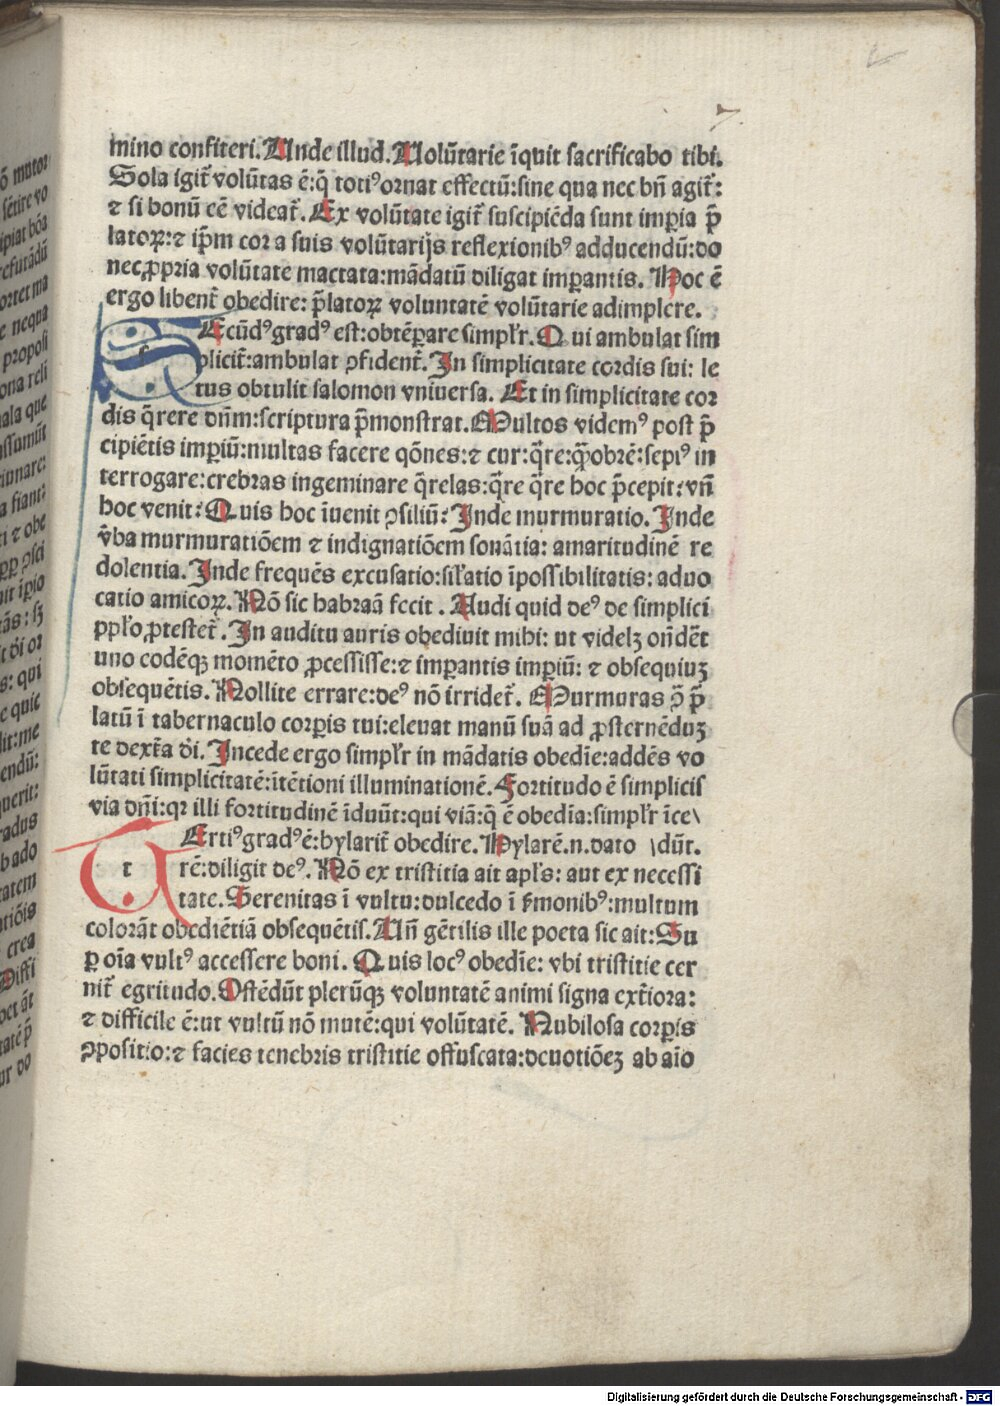 mino confiteri. Unde illud. Uolũtarie ĩquit sacrificabo tibi.
Sola igit̃ volũtas ẽ: q̃ totiꝰ ornat effectũ: sine qua nec bñ agit̃:
⁊ si bonũ eẽ videat̃. Ex volũtate igit̃ suscipiẽda sunt imꝑia p̃
latoꝝ: ⁊ ip̃m cor a suis volũtarijs reflexionibꝰ adducendũ: do
nec ꝓpria volũtate mactata: mãdatũ diligat imꝑantis. Hoc ẽ
ergo libent̃ obedire: p̃latoꝝ voluntatẽ volũtarie adimplere.
SEcũdꝰ gradꝰ est: obtẽꝑare simpl̃r. Qui ambulat sim
plicit̃: ambulat ꝯfident̃. In simplicitate cordis sui: le
tus obtulit salomon vniuersa. Et in simplicitate cor
dis q̃rere dñm: scriptura p̃monstrat. Multos videmꝰ post p̃
cipiẽtis imꝑiũ: multas facere q̃ões: ⁊ cur: q̃re: q̃obrẽ: sepiꝰ in
terrogare: crebras ingeminare q̃relas: q̃re q̃re hoc p̃cepit: vñ
hoc venit: Quis hoc ĩuenit ꝯsiliũ: Inde murmuratio. Inde
ṽba murmuratiõem ⁊ indignatiõem sonãtia: amaritudinẽ re
dolentia. Inde frequẽs excusatio: sil̃atio ĩpossibilitatis: aduo
catio amicoꝝ. Nõ sic habraã fecit. Audi quid deꝰ de simplici
ppl̃o ꝓtestet̃. In auditu auris obediuit mihi: ut videlꝫ oñdẽt
uno eodẽqꝫ momẽto ꝓcessisse: ⁊ imꝑantis imꝑiũ: ⁊ obsequiuꝫ
obsequẽtis. Nollite errare: deꝰ nõ irridet̃. Murmuras ꝯ̃ p̃
latũ ĩ tabernaculo corꝑis tui: eleuat manũ suã ad ꝓsternẽduꝫ
te dext̃a dĩ. Incede ergo simpl̃r in mãdatis obediẽ: addẽs vo
lũtati simplicitatẽ: ĩtẽtioni illuminationẽ. Fortitudo ẽ simplicis
via dñi: qꝛ illi fortitudinẽ ĩduũt: qui viã: q̃ ẽ obedia: simpl̃r ĩce\
TErtiꝰ gradꝰ ẽ: hylarit̃ obedire. Hylarẽ .n. dato \dũt.
rẽ: diligit deꝰ. Nõ ex tristitia ait apl̃s: aut ex necessi
tate. Serenitas ĩ vultu: dulcedo ĩ s̃monibꝰ: multum
colorãt obediẽtiã obsequẽtis. Uñ gẽtilis ille poeta sic ait: Su
ꝑ oĩa vultꝰ accessere boni. Quis locꝰ obediẽ: vbi tristitie cer
nit̃ egritudo. Ostẽdũt plerũqꝫ voluntatẽ animi signa ext̃iora:
⁊ difficile ẽ: ut vultũ nõ mutẽ: qui volũtatẽ. Nubilosa corꝑis
ꝯpositio: ⁊ facies tenebris tristitie offuscata: deuotiõeꝫ ab aĩo
Digitalisierung gefördert durch die Deutsche Forschungsgemeinschaft - DFG